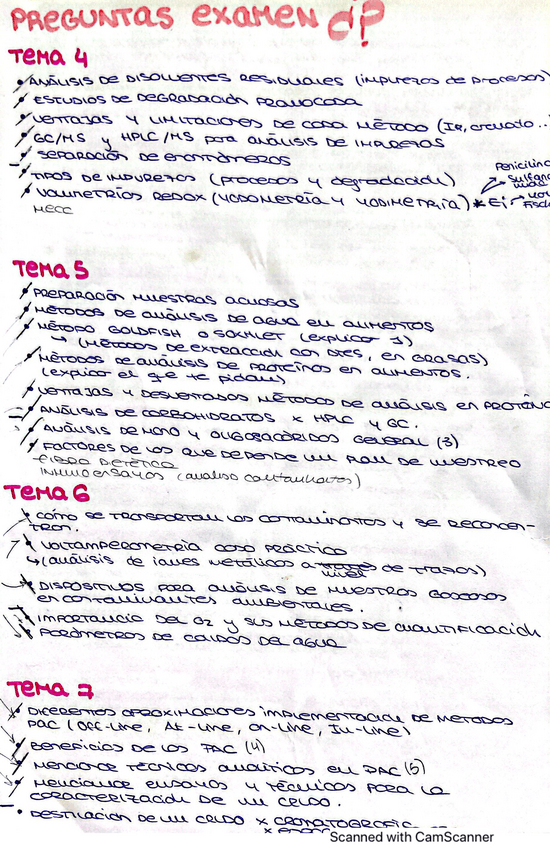 PREGUNTAS EXAMEN ¿?
TEMA 4
• ANÁLISIS DE DISOLVENTES RESIDUALES (impurezas de procesos)
• ESTUDIOS DE DEGRADACIÓN PROVOCADA
• VENTAJAS Y LIMITACIONES DE CADA MÉTODO (IR,
• GC/MS y HPLC/MS para ANÁLISIS DE IMPUREZAS
• SEPARACIÓN DE ENANTIÓMEROS
• TIPOS DE IMPUREZAS (procesos y degradación)
• VOLUMETRÍAS REDOX (YODOMETRÍA Y YODIMETRÍA) * Ej →
Penicilina
MECC
TEMA 5
• PREPARACIÓN MUESTRAS ACUOSAS
• MÉTODOS DE ANÁLISIS DE AGUA EN ALIMENTOS
• MÉTODO GOLDFISH O SOXHLET (explicar 1)
↳ (MÉTODOS DE EXTRACCIÓN CON DTES, EN GRASAS)
• MÉTODOS DE ANÁLISIS DE PROTEÍNAS EN ALIMENTOS.
(explicar el q e te pidan)
• VENTAJAS Y DESVENTAJAS MÉTODOS DE ANÁLISIS EN PROTEÍNAS
• ANÁLISIS DE CARBOHIDRATOS x HPLC y GC.
• ANÁLISIS DE MONO Y OLIGOSACÁRIDOS GENERAL (3)
• FACTORES DE LOS QUE DEPENDE UN PLAN DE MUESTREO
FIBRA DIETÉTICA
INMUNOENSAYOS (análisis contaminantes)
TEMA 6
• CÓMO SE TRANSPORTAN LOS CONTAMINANTES Y SE RECONCEN-
TRAN.
• VOLTAMPEROMETRÍA CASO PRÁCTICO
↳ (análisis de iones metálicos a nivel de trazas)
• DISPOSITIVOS PARA ANÁLISIS DE MUESTRAS GASEOSAS
EN CONTAMINANTES AMBIENTALES.
• IMPORTANCIA DEL O2 Y SUS MÉTODOS DE CUANTIFICACIÓN
• PARÁMETROS DE CALIDAD DEL AGUA
TEMA 7
• DIFERENTES APROXIMACIONES IMPLEMENTACIÓN DE MÉTODOS
PAC (OFF-Line, At-Line, On-Line, In-Line)
• BENEFICIOS DE LOS PAC (4)
• MENCIONE TÉCNICAS ANALÍTICAS EN PAC (5)
• MENCIONE ENSAYOS Y TÉCNICAS PARA LA
CARACTERIZACIÓN DE UN CRUDO.
• DESTILACIÓN DE UN CRUDO x CROMATOGRAFÍA
Scanned with CamScanner